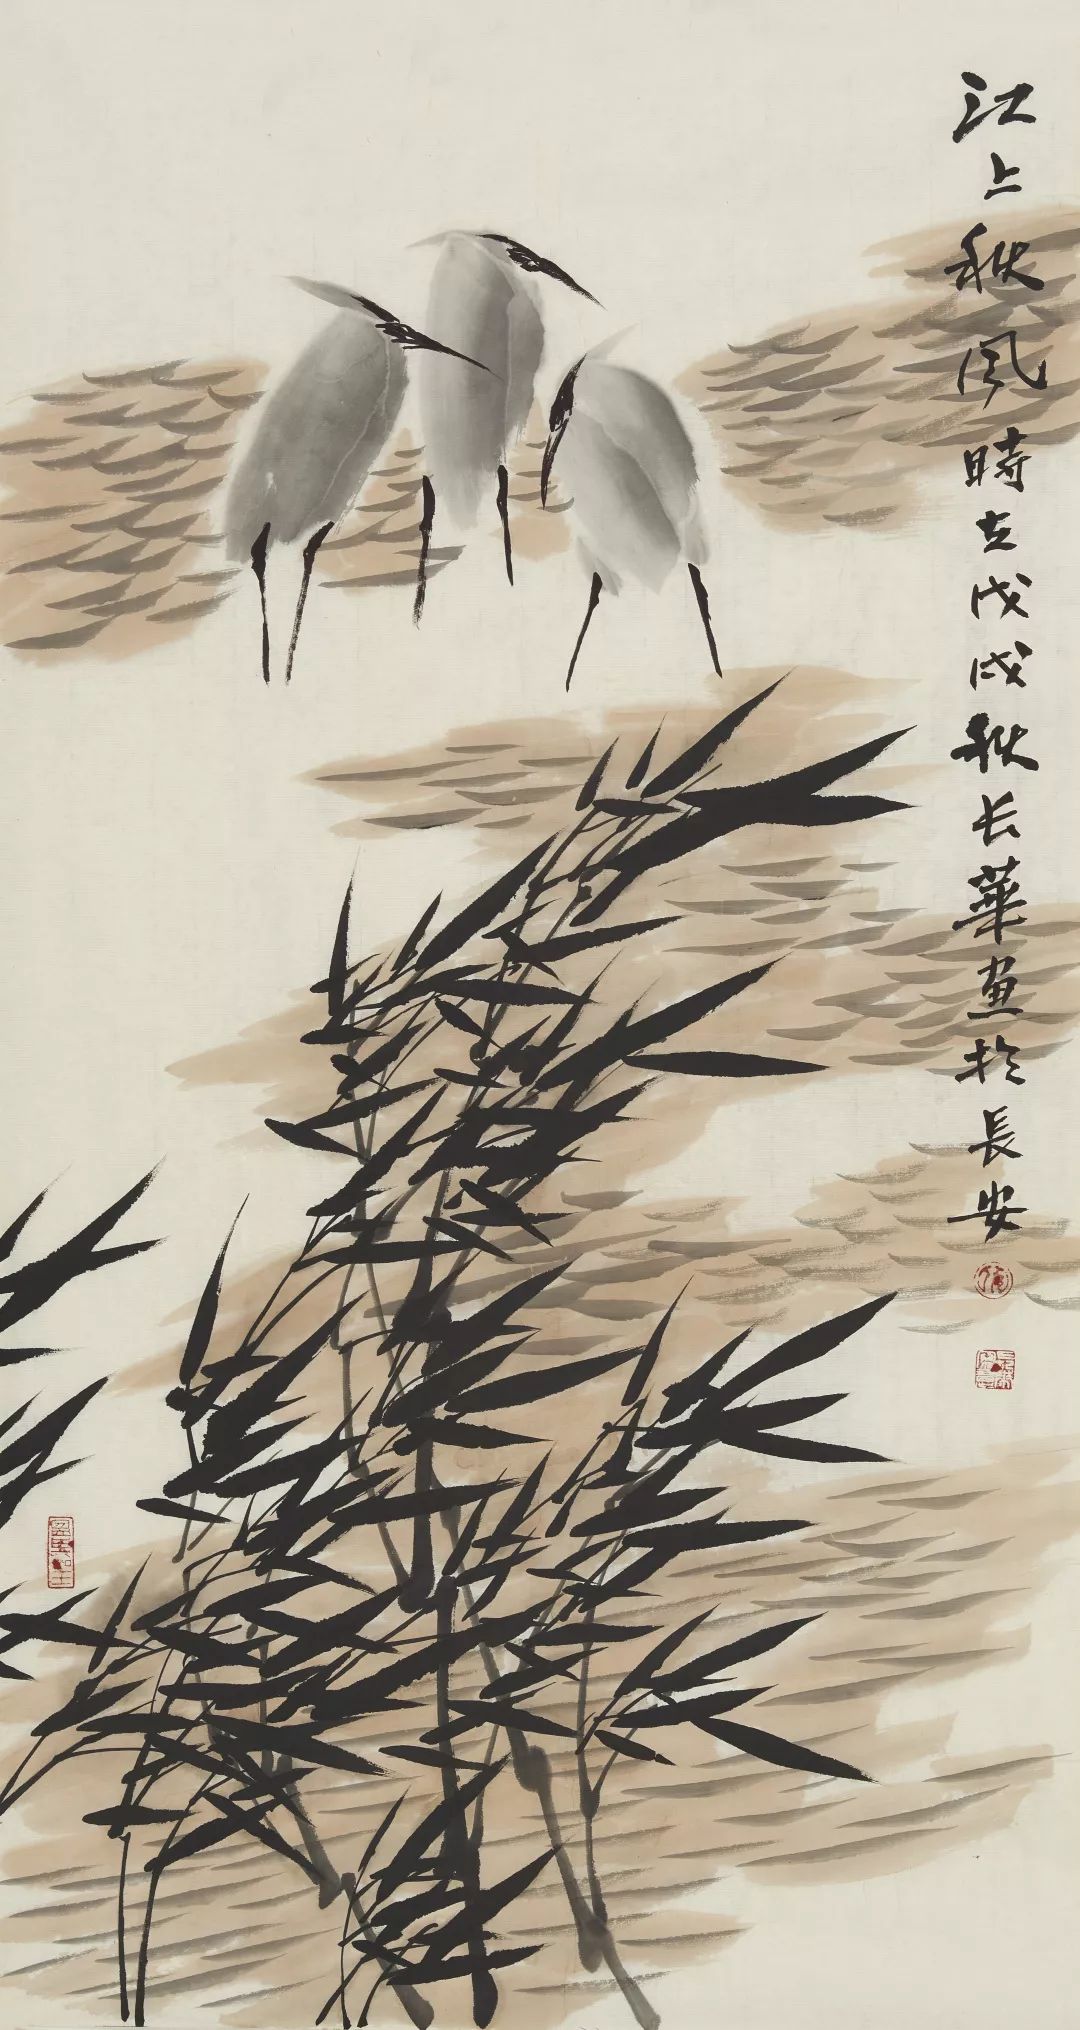 江上秋风時在戊戌秋长華画於長安